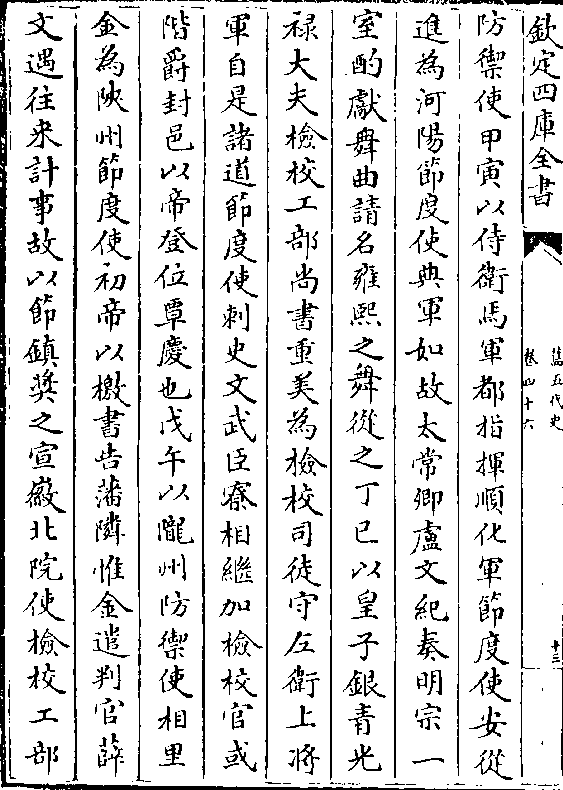 欽定四庫全書
舊五代史
卷四十六
十三
防禦使甲寅以侍衛馬軍都指揮順化軍節度使安從
進為河陽節度使典軍如故太常卿盧文紀奏明宗一
室酌獻舞曲請名雍熙之舞從之丁巳以皇子銀青光
禄大夫檢校工部尚書重美為檢校司徒守左衛上將
軍自是諸道節度使刺史文武臣寮相繼加檢校官或
階爵封邑以帝登位覃慶也戊午以隴州防禦使相里
金為陜州節度使初帝以檄書告藩隣惟金遣判官薛
文遇往來計事故以節鎮奬之宣徽北院使檢校工部